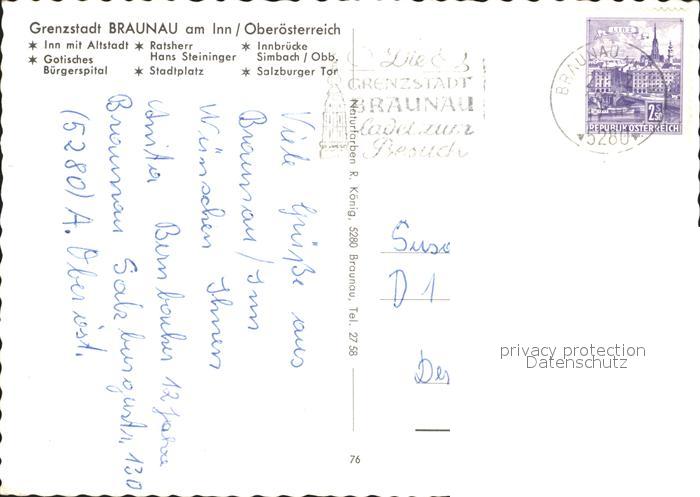 Grenzstadt BRAUNAU am Inn / Oberösterreich
✶ Inn mit Altstadt ✶ Ratsherr Hans Steininger ✶ Innbrücke Simbach / Obb.
✶ Gotisches Bürgerspital ✶ Stadtplatz ✶ Salzburger Tor
Die
GRENZSTADT
BRAUNAU
ladet zum
Besuch
LINZ
2.50
REPUBLIK ÖSTERREICH
BRAUNAU
5280
Viele Grüße aus
Braunau / Inn
Wünschen Ihnen
Anita Birnbacher 12 Jahre
Braunau Salzburgerstr. 130
(5280) A. Oberöst.
Naturfarben R. König, 5280 Braunau, Tel. 27 58
Susa
D 1
De
privacy protection
Datenschutz
76